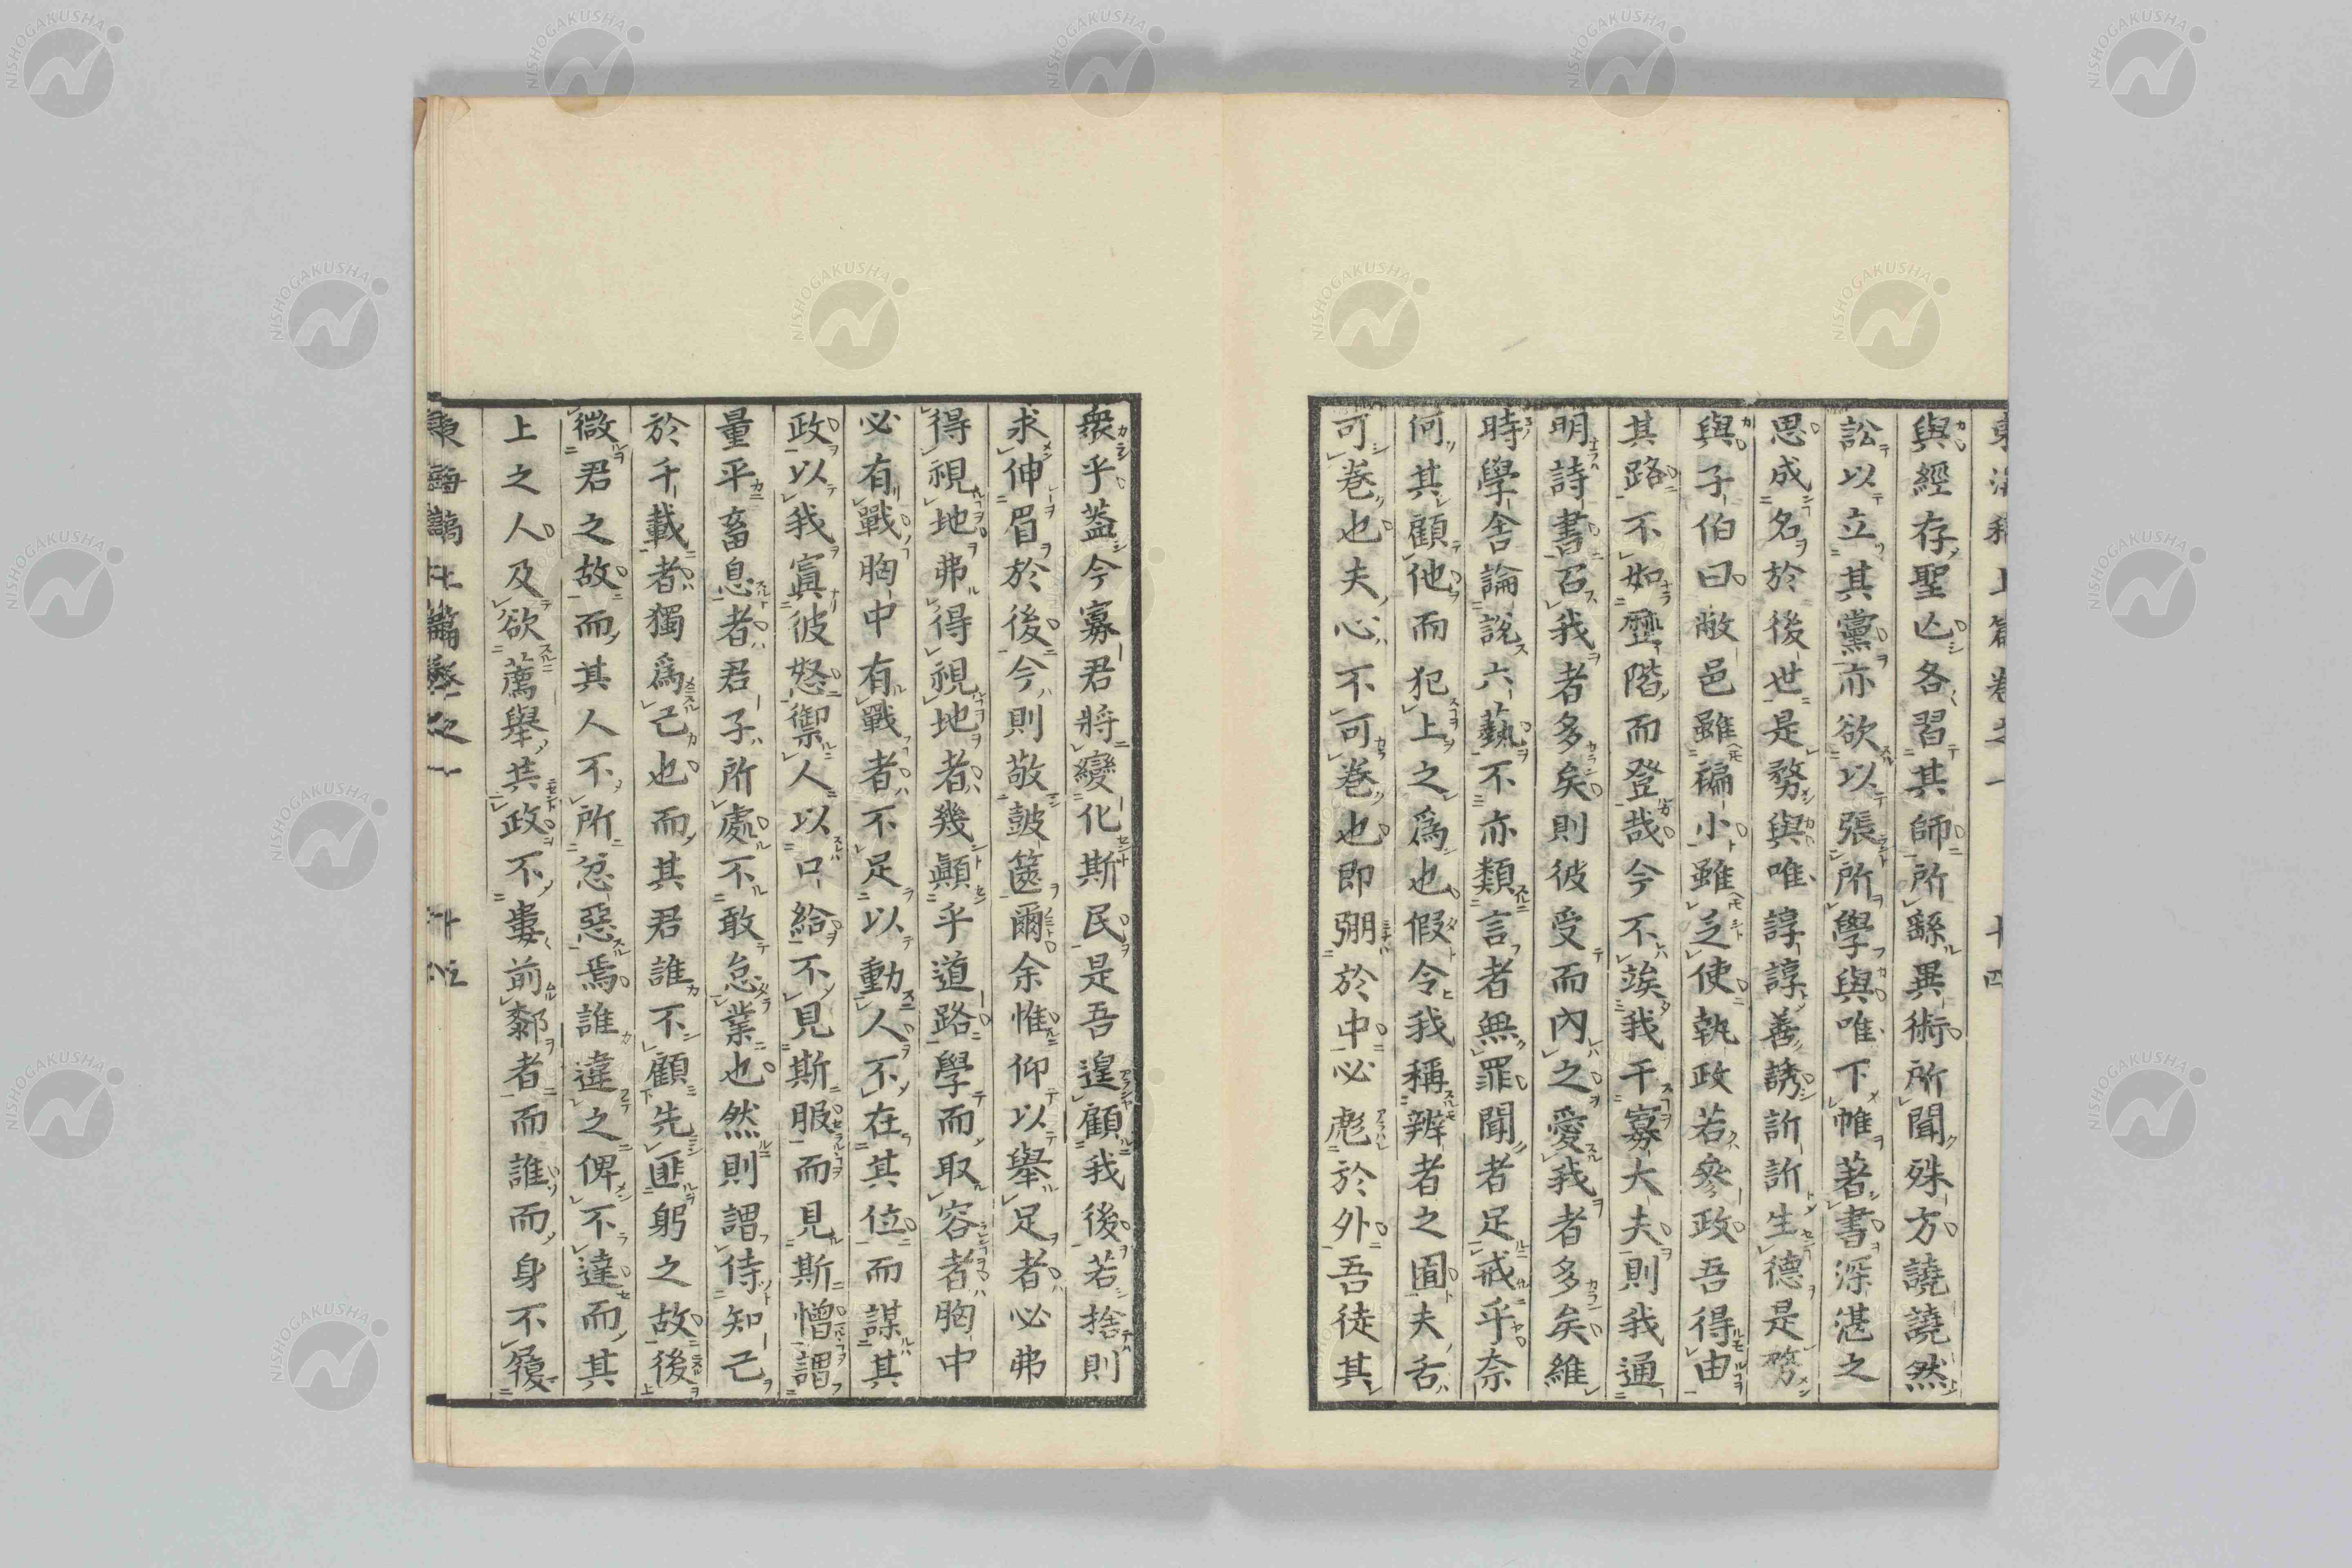 與經存聖亾各習其師所繇異術所聞殊方譊譊然
訟以立其黨亦欲以張所學與唯下帷著書深湛之
思成名於後世是務與唯諄諄善誘訢訢生德是務
與子伯曰敝邑雖褊小雖乏使執政若參政吾得由
其路不如歷階而登哉今不竢我干寡大夫則我通
明詩書召我者多矣則彼受而內之愛我者多矣維
時學舍論說六藝不亦類言者無罪聞者足戒乎奈
何其顧他而犯上之爲也假令我稱辨者之囿夫舌
可卷也夫心不可卷也即弸於中必彪於外吾徒其
衆乎蓋今寡君將變化斯民是吾遑顧我後若捨則
求伸眉於後今則敬鼓篋爾余惟仰以舉足者必弗
得視地弗得視地者幾顚乎道路學而取容者胸中
必有戰胸中有戰者不足以動人不在其位而謀其
政以我寘彼怒禦人以口給不見斯服而見斯憎謂
量平畜息者君子所處不敢怠業也然則謂侍知己
於千載者獨爲己也而其君誰不顧先匪躬之故後
微君之故而其人不所忿惡焉誰違之俾不達而其
上之人及欲薦舉共政不婁前鄴者而誰而身不履
東海稿上篇卷之一 十四